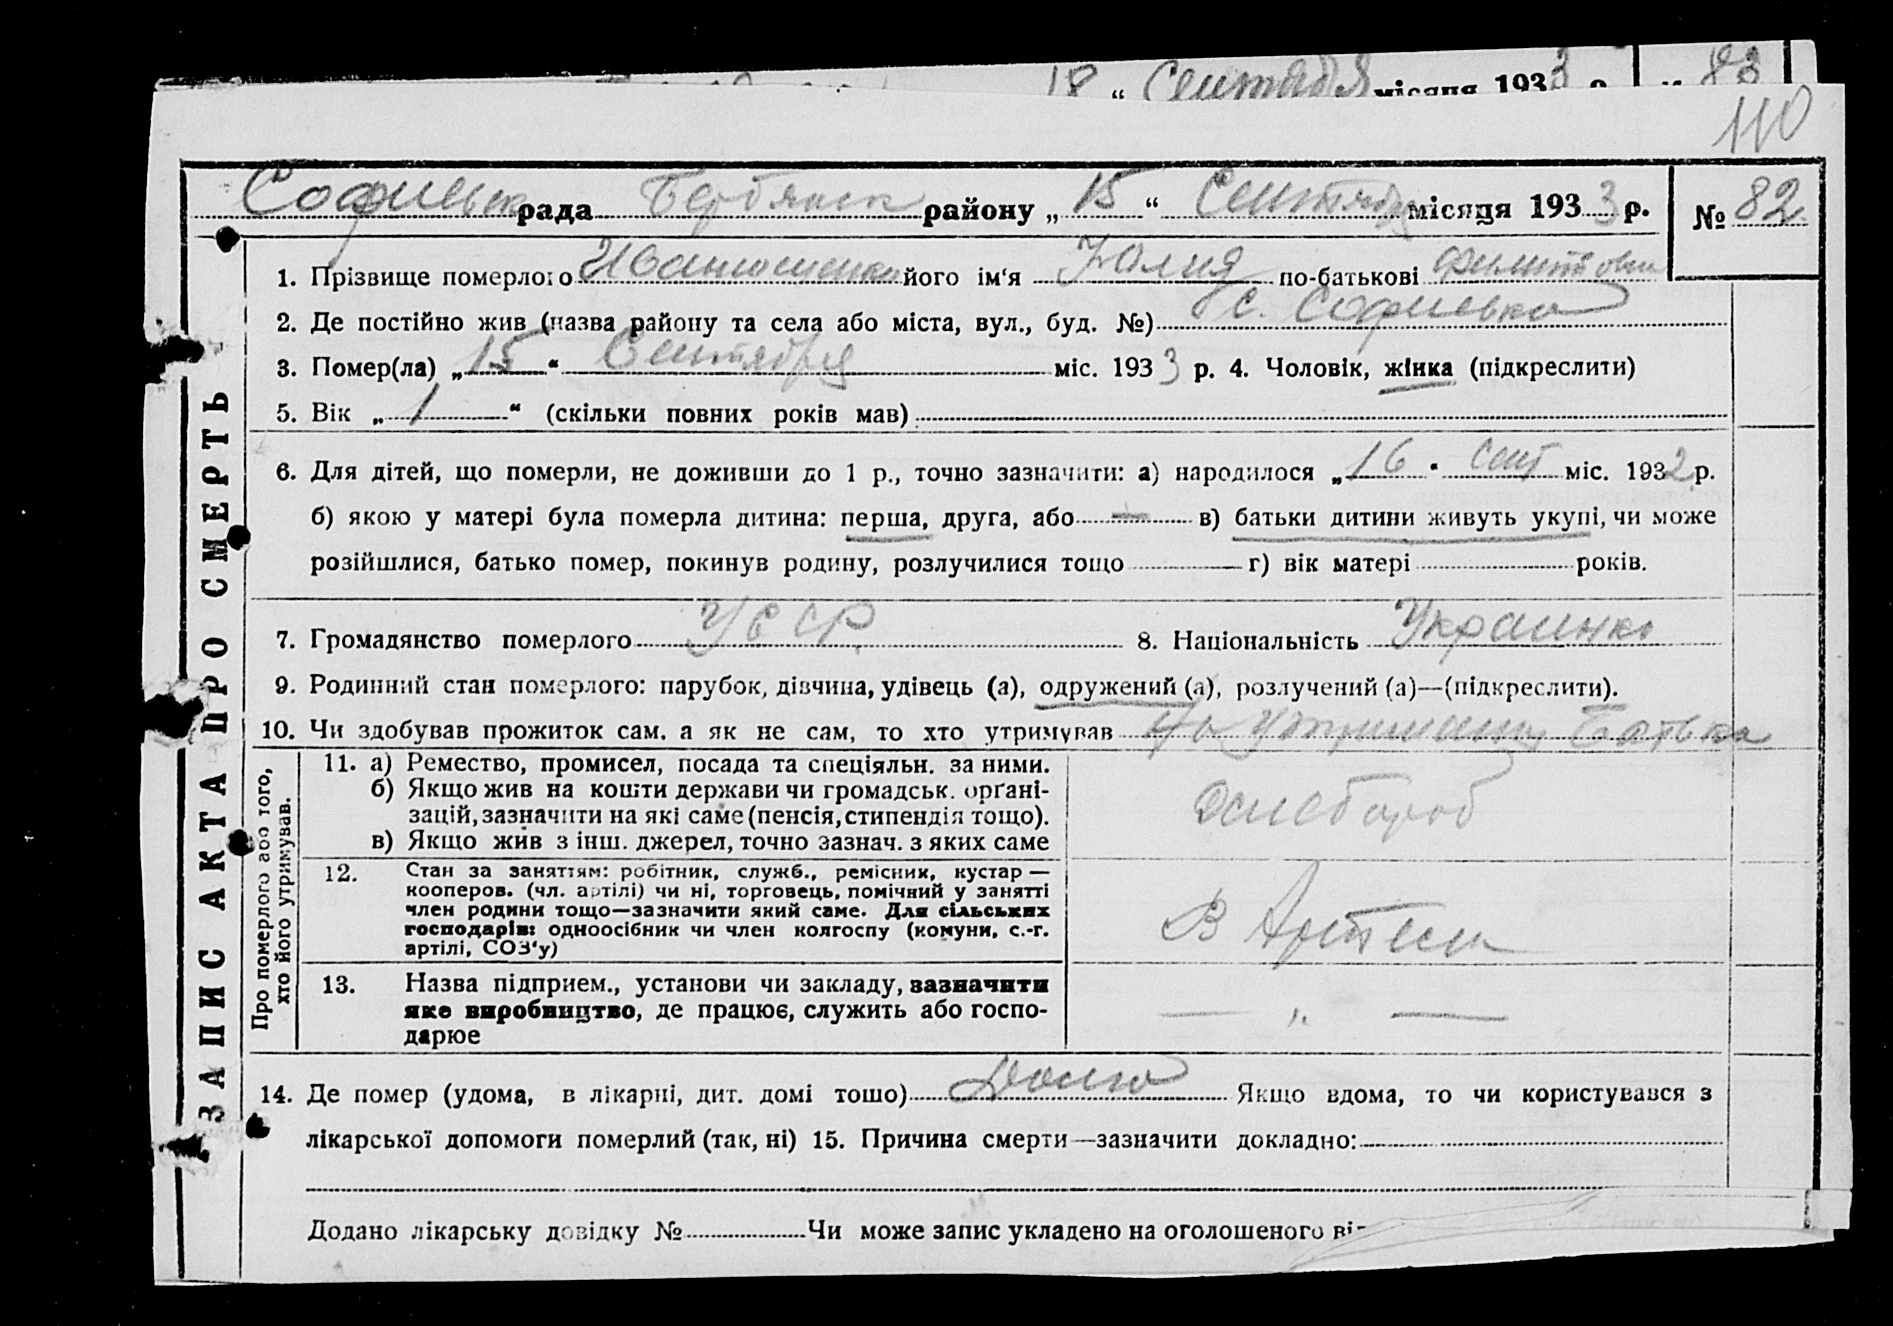 18 “ Сентября місяця 1933 р. № 83
110
Софиевка рада Бердянск району „ 15 “ Сентября місяця 1933 р. № 82
1. Прізвище померлого Иванюшенко його ім‘я Юлия по-батькові
2. Де постійно жив (назва району та села або міста, вул., буд. №) с. Софиевка
3. Помер(ла) „ 15 “ Сентября міс. 1933 р. 4. Чоловік, жінка (підкреслити)
5. Вік „ 1 “ (скільки повних років мав)
6. Для дітей, що померли, не доживши до 1 р., точно зазначити: а) народилося „ 16 “ Сент міс. 1932 р.
б) якою у матері була померла дитина: перша, друга, або — в) батьки дитини живуть укупі, чи може
розійшлися, батько помер, покинув родину, розлучилися тощо г) вік матері років.
7. Громадянство померлого УССР 8. Національність Украинка
9. Родинний стан померлого: парубок, дівчина, удівець (а), одружений (а), розлучений (а)—(підкреслити).
10. Чи здобував прожиток сам, а як не сам, то хто утримував На утримании Батька
ЗАПИС АКТА ПРО СМЕРТЬ
Про померлого або того,
хто його утримував.
11. а) Ремество, промисел, посада та спеціяльн. за ними.
б) Якщо жив на кошти держави чи громадськ. орґані-
зацій, зазначити на які саме (пенсія, стипендія тощо).
в) Якщо жив з інш. джерел, точно зазнач. з яких саме
Хлебороб
12. Стан за заняттям: робітник, служб., ремісник, кустар —
кооперов. (чл. артілі) чи ні, торговець, помічний у занятті
член родини тощо—зазначити який саме. Для сільських
господарів: одноосібник чи член колгоспу (комуни, с.-г.
артілі, СОЗ‘у)
В Артели
13. Назва підприєм., установи чи закладу, зазначити
яке виробництво, де працює, служить або госпо-
дарює
— „ —
14. Де помер (удома, в лікарні, дит. домі тощо) Дома Якщо вдома, то чи користувався з
лікарської допомоги померлий (так, ні) 15. Причина смерти—зазначити докладно:
Додано лікарську довідку № Чи може запис укладено на оголошеного ві